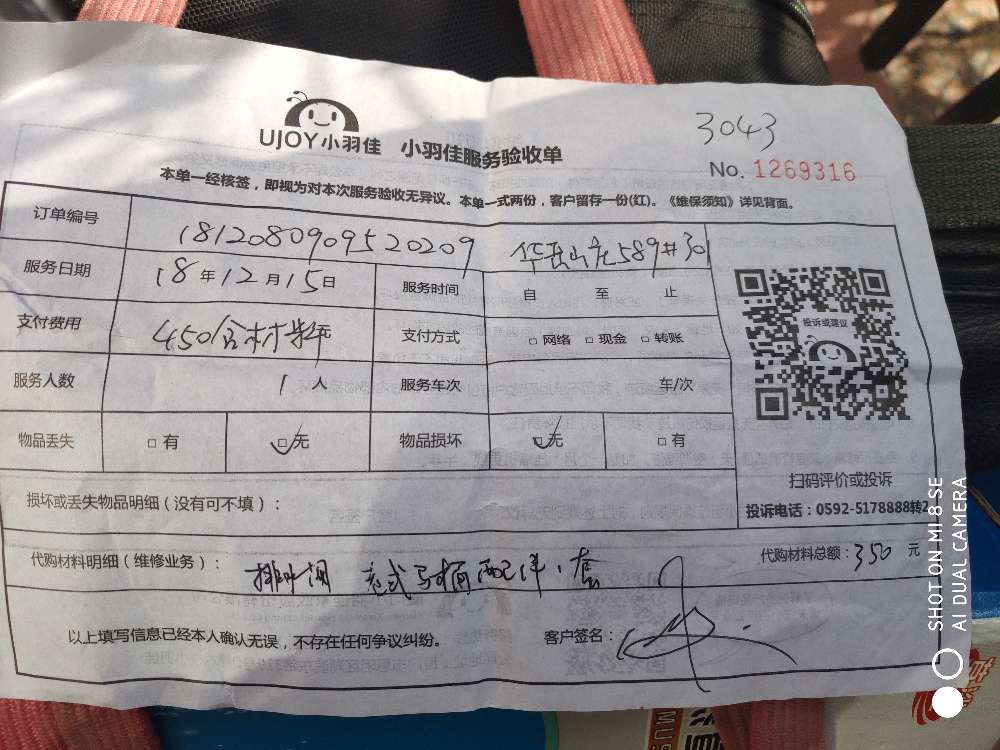 3043
UJOY小羽佳 小羽佳服务验收单
No. 1269316
本单一经核签，即视为对本次服务验收无异议。本单一式两份，客户留存一份(红)。《维保须知》详见背面。
订单编号 1812080909520209
589#301
服务日期 18年12月15日 服务时间 自 至 止
支付费用 450含材料 支付方式 □网络 □现金 □转账
投诉或建议
服务人数 1人 服务车次 车/次
物品丢失 □有 □无 物品损坏 □无 □有
扫码评价或投诉
损坏或丢失物品明细（没有可不填）：
投诉电话：0592-5178888转2
代购材料明细（维修业务）： 老式马桶配件1套
代购材料总额：350 元
以上填写信息已经本人确认无误，不存在任何争议纠纷。 客户签名：
SHOT ON MI 8 SE
AI DUAL CAMERA